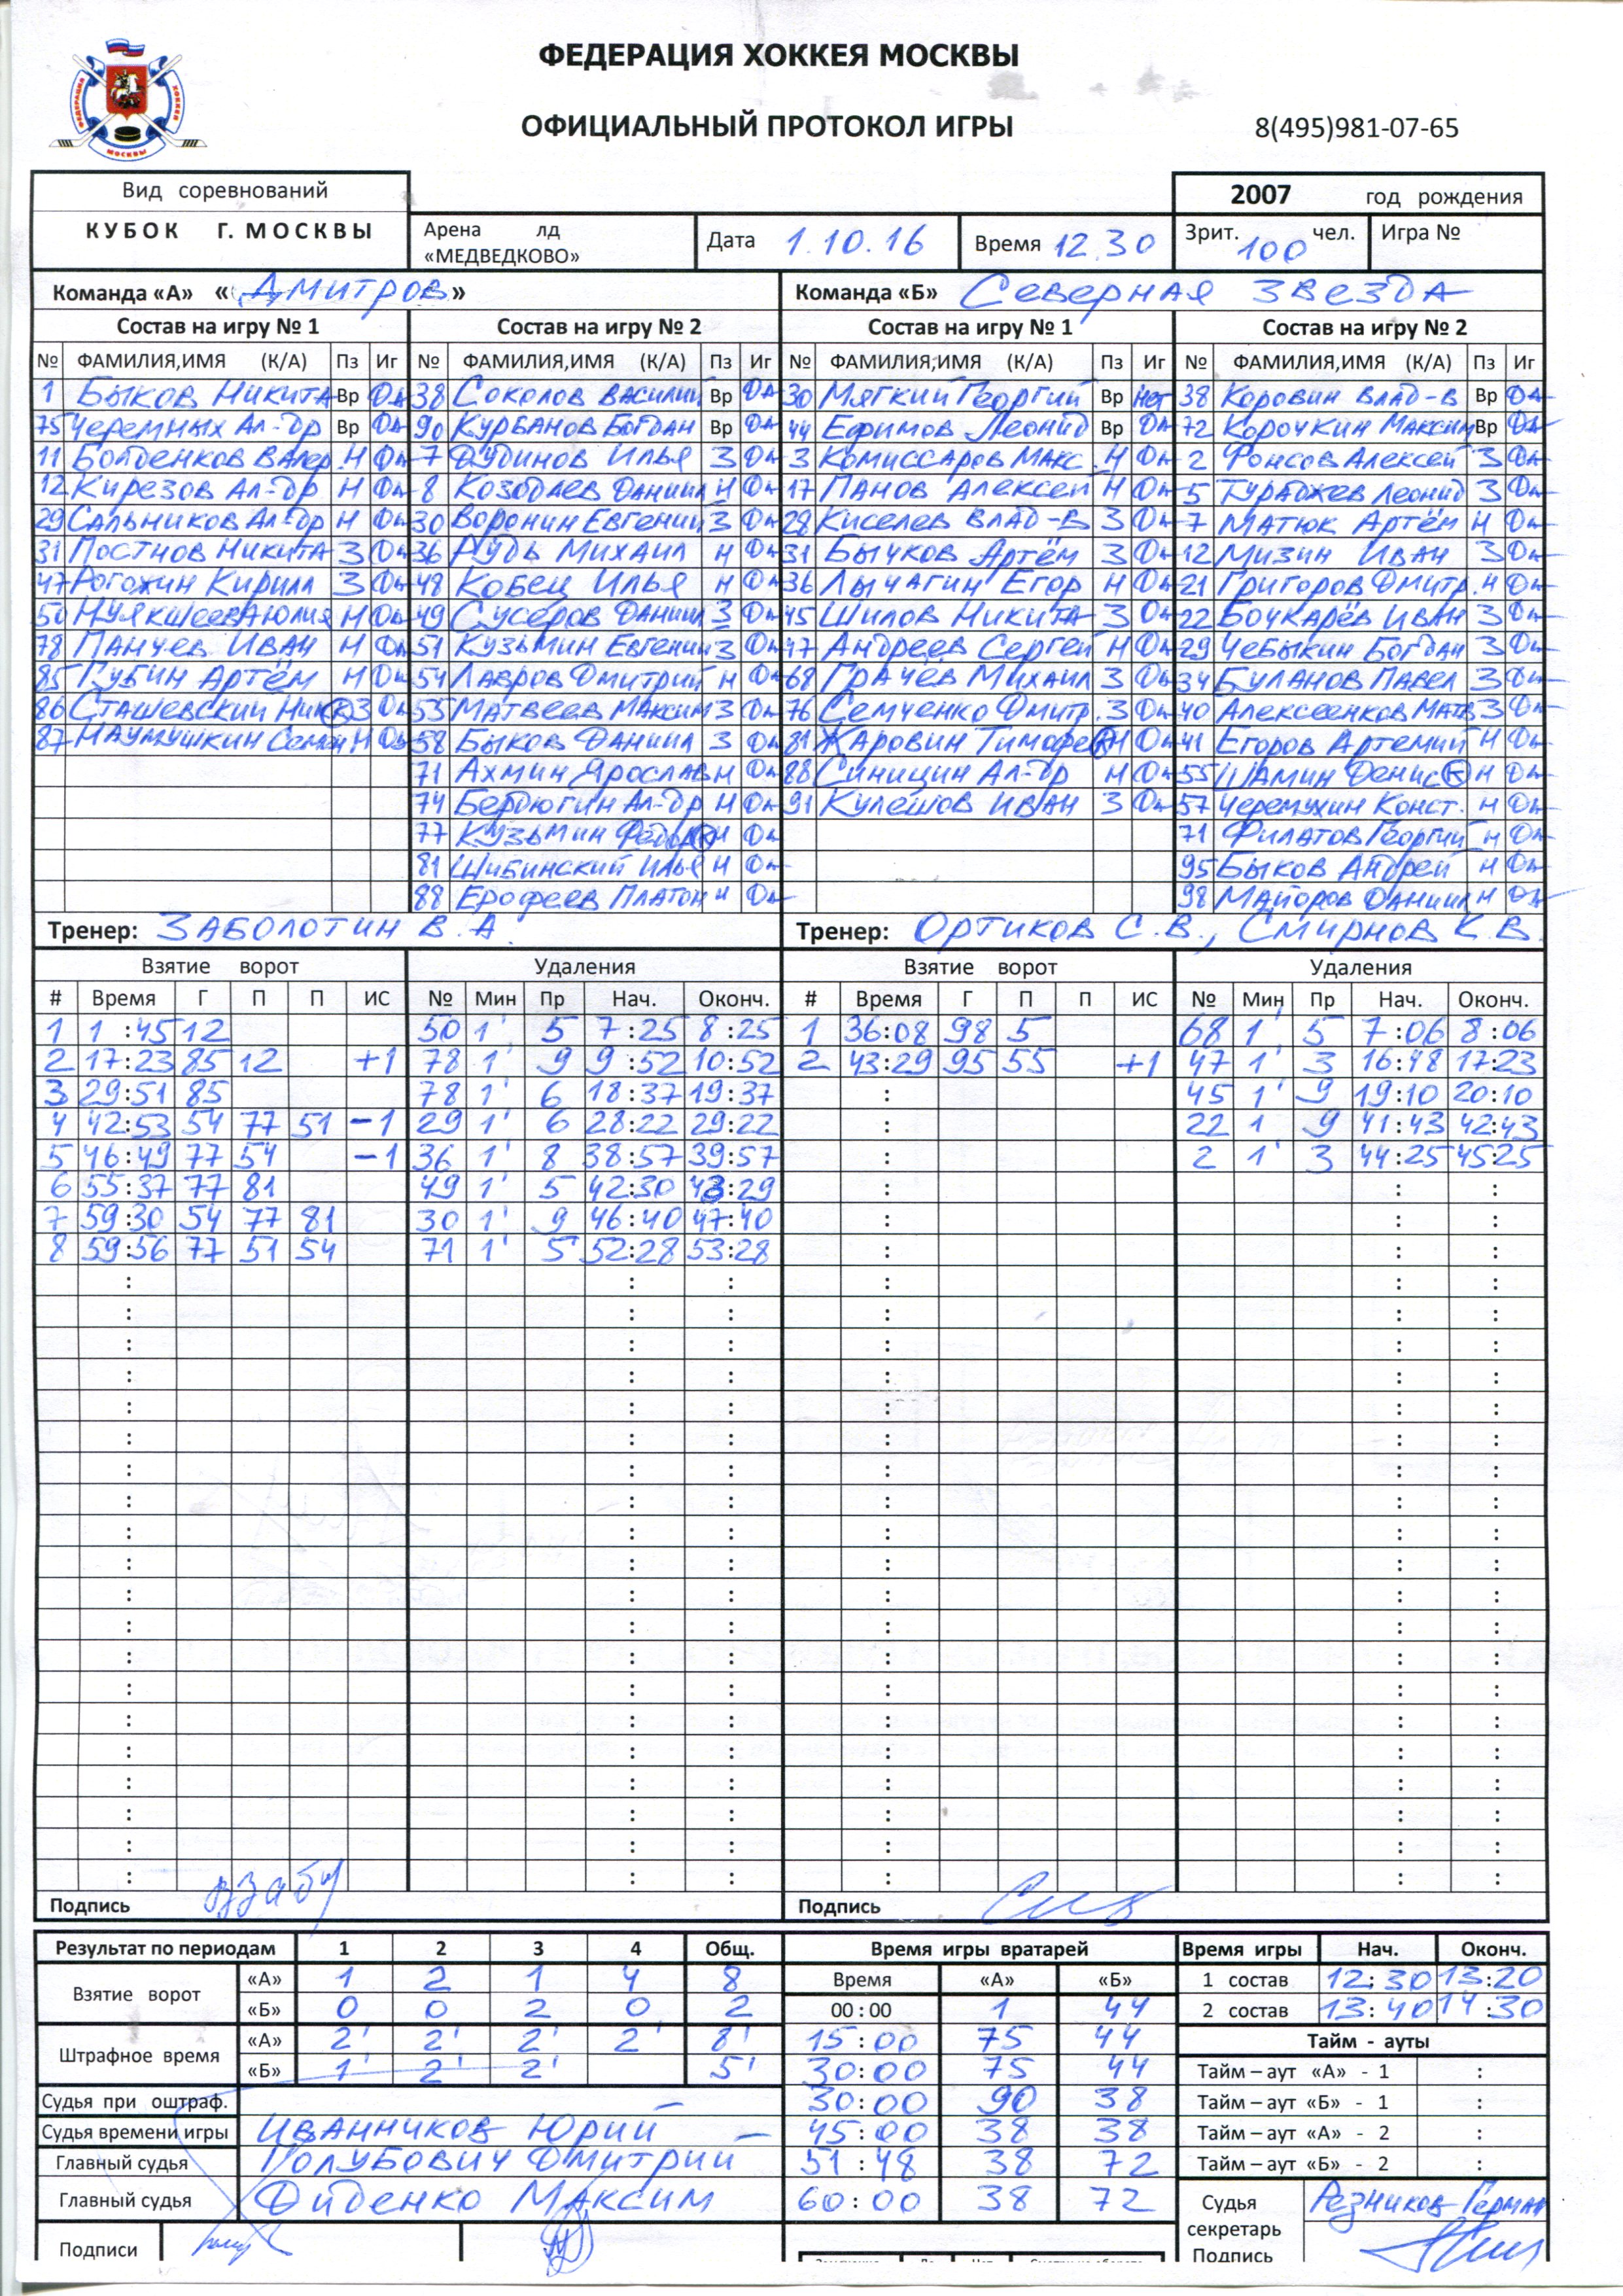 ФЕДЕРАЦИЯ ХОККЕЯ МОСКВЫ
ОФИЦИАЛЬНЫЙ ПРОТОКОЛ ИГРЫ 8(495)981-07-65
ФЕДЕРАЦИЯ ХОККЕЯ МОСКВЫ
Вид соревнований 2007 год рождения
КУБОК Г. МОСКВЫ Арена лд «МЕДВЕДКОВО» Дата 1.10.16 Время 12.30 Зрит. 100 чел. Игра №
Команда «А» «Дмитров» Команда «Б» Северная звезда
Состав на игру № 1 Состав на игру № 2 Состав на игру № 1 Состав на игру № 2
№ ФАМИЛИЯ,ИМЯ (К/А) Пз Иг № ФАМИЛИЯ,ИМЯ (К/А) Пз Иг № ФАМИЛИЯ,ИМЯ (К/А) Пз Иг № ФАМИЛИЯ,ИМЯ (К/А) Пз Иг
1 Быков Никита Вр Да 38 Соколов Василий Вр Да 30 Мягкий Георгий Вр Нет 38 Коровин Влад-в Вр Да
75 Черемных Ал-др Вр Да 90 Курбанов Богдан Вр Да 44 Ефимов Леонид Вр Да 72 Корочкин Максим Вр Да
11 Болденков Валер. Н Да 7 Дудинов Илья З Да 3 Комиссаров Макс. Н Да 2 Фонсов Алексей З Да
12 Кирезов Ал-др Н Да 8 Козодаев Даниил Н Да 17 Панов Алексей Н Да 5 Тураджев Леонид З Да
29 Сальников Ал-др Н Да 30 Воронин Евгений З Да 28 Киселев Влад-в З Да 7 Матюк Артём Н Да
31 Постнов Никита З Да 36 Рудь Михаил Н Да 31 Бычков Артём З Да 12 Мизин Иван З Да
47 Рогожин Кирилл З Да 48 Кобец Илья Н Да 36 Лычагин Егор Н Да 21 Григоров Дмитр. Н Да
50 Н Да 49 Сусеров Даниил З Да 45 Шилов Никита З Да 22 Бочкарёв Иван З Да
78 Панчев Иван Н Да 51 Кузьмин Евгений З Да 47 Андреев Сергей Н Да 29 Чебыкин Богдан З Да
85 Губин Артём Н Да 54 Лавров Дмитрий Н Да 68 Грачёв Михаил З Да 34 Буланов Павел З Да
86 Сташевский Ник К З Да 55 Матвеев Максим З Да 76 Семченко Дмитр. З Да 40 Алексеенков Матв З Да
87 Наумушкин Семён Н Да 58 Быков Даниил З Да 81 Жаровин Тимофе К Н Да 41 Егоров Артемий Н Да
71 Ахмин Ярослав Н Да 88 Синицин Ал-др Н Да 55 Шамин Денис К Н Да
74 Бердюгин Ал-др Н Да 91 Кулешов Иван З Да 57 Черемухин Конст. Н Да
77 Кузьмин Федор К Н Да 71 Филатов Георгий Н Да
81 Шибинский Илья Н Да 95 Быков Андрей Н Да
88 Ерофеев Платон Н Да 98 Майоров Даниил Н Да
Тренер: Заболотин В.А. Тренер: Ортиков С.В., Смирнов К.В.
Взятие ворот Удаления Взятие ворот Удаления
# Время Г П П ИС № Мин Пр Нач. Оконч. # Время Г П П ИС № Мин Пр Нач. Оконч.
1 1:45 12 50 1' 5 7:25 8:25 1 36:08 98 5 68 1' 5 7:06 8:06
2 17:23 85 12 +1 78 1' 9 9:52 10:52 2 43:29 95 55 +1 47 1' 3 16:48 17:23
3 29:51 85 78 1' 6 18:37 19:37 45 1' 9 19:10 20:10
4 42:53 54 77 51 -1 29 1' 6 28:22 29:22 22 1 9 41:43 42:43
5 46:49 77 54 -1 36 1' 8 38:57 39:57 2 1' 3 44:25 45:25
6 55:37 77 81 49 1' 5 42:30 43:29
7 59:30 54 77 81 30 1' 9 46:40 47:40
8 59:56 77 51 54 71 1' 5 52:28 53:28
Подпись Подпись
Результат по периодам 1 2 3 4 Общ. Время игры вратарей Время игры Нач. Оконч.
Взятие ворот «А» 1 2 1 4 8 Время «А» «Б» 1 состав 12:30 13:20
«Б» 0 0 2 0 2 00:00 1 44 2 состав 13:40 14:30
Штрафное время «А» 2' 2' 2' 2' 8' 15:00 75 44 Тайм - ауты
«Б» 1' 2' 2' 5' 30:00 75 44 Тайм – аут «А» - 1 :
Судья при оштраф. 30:00 90 38 Тайм – аут «Б» - 1 :
Судья времени игры Иванников Юрий 45:00 38 38 Тайм – аут «А» - 2 :
Главный судья Голубович Дмитрий 51:48 38 72 Тайм – аут «Б» - 2 :
Главный судья Диденко Максим 60:00 38 72 Судья секретарь Резников Герман
Подписи Подпись